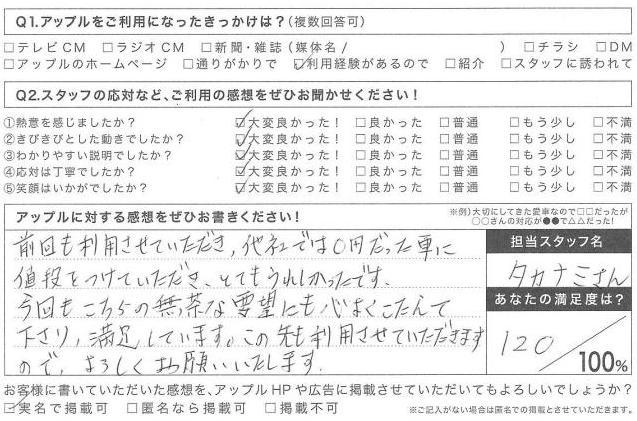 Q1.アップルをご利用になったきっかけは?(複数回答可)
□テレビCM □ラジオCM □新聞・雑誌(媒体名/ ) □チラシ □DM
□アップルのホームページ □通りがかりで ☑利用経験があるので □紹介 □スタッフに誘われて
Q2.スタッフの応対など、ご利用の感想をぜひお聞かせください!
①熱意を感じましたか? ☑大変良かった! □良かった □普通 □もう少し □不満
②きびきびとした動きでしたか? ☑大変良かった! □良かった □普通 □もう少し □不満
③わかりやすい説明でしたか? ☑大変良かった! □良かった □普通 □もう少し □不満
④応対は丁寧でしたか? ☑大変良かった! □良かった □普通 □もう少し □不満
⑤笑顔はいかがでしたか? ☑大変良かった! □良かった □普通 □もう少し □不満
アップルに対する感想をぜひお書きください!
※例)大切にしてきた愛車なので□□だったが
○○さんの対応が●●で△△だった!
前回も利用させていただき、他社では0円だった車に
値段をつけていただき、とてもうれしかったです。
今回もこちらの無茶な要望にも心よくこたえて
下さり、満足しています。この先も利用させていただきます
ので、よろしくお願いいたします。
担当スタッフ名
タカナミさん
あなたの満足度は?
120/100%
お客様に書いていただいた感想を、アップルHPや広告に掲載させていただいてもよろしいでしょうか?
☑実名で掲載可 □匿名なら掲載可 □掲載不可
※ご記入がない場合は匿名での掲載とさせていただきます。